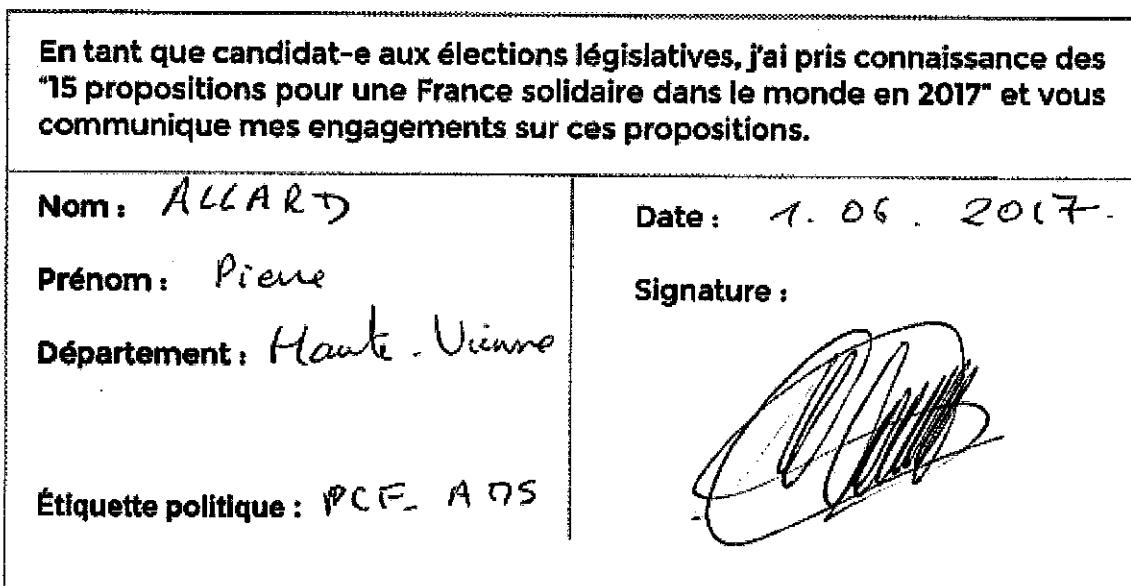 En tant que candidat-e aux élections législatives, j'ai pris connaissance des
"15 propositions pour une France solidaire dans le monde en 2017" et vous
communique mes engagements sur ces propositions.
Nom : ALLARD
Prénom : Pierre
Département : Haute-Vienne
Étiquette politique : PCF- ADS
Date : 1. 06. 2017.
Signature :